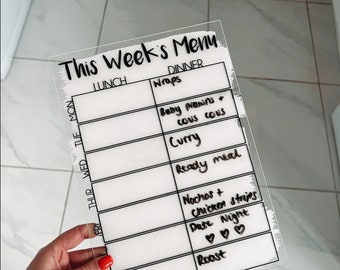 This Week's Menu
LUNCH DINNER
MON
Wraps
TUE
Baby prawns +
cous cous
WED
Curry
THUR
Ready meal
Nachos +
chicken strips
Date Night
Roast